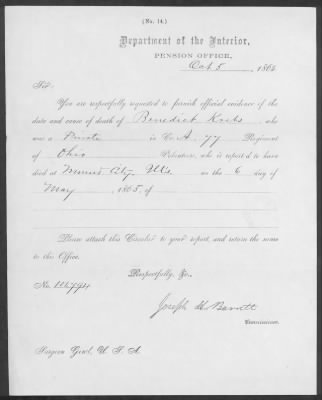 (No. 14.)
Department of the Interior,
PENSION OFFICE,
Oct 5, 1865
Sir:
You are respectfully requested to furnish official evidence of the
date and cause of death of Benedict Krebs, who
was a Private in Co. A. 77 Regiment
of Ohio Volunteers, who is reported to have
died at Mound City Ills. on the 6 day of
May, 1865, of
Please attach this Circular to your report, and return the same
to this Office.
Respectfully, &c.
No. 126794
Joseph H. Barrett
Commissioner.
Surgeon Genl, U. S. A.